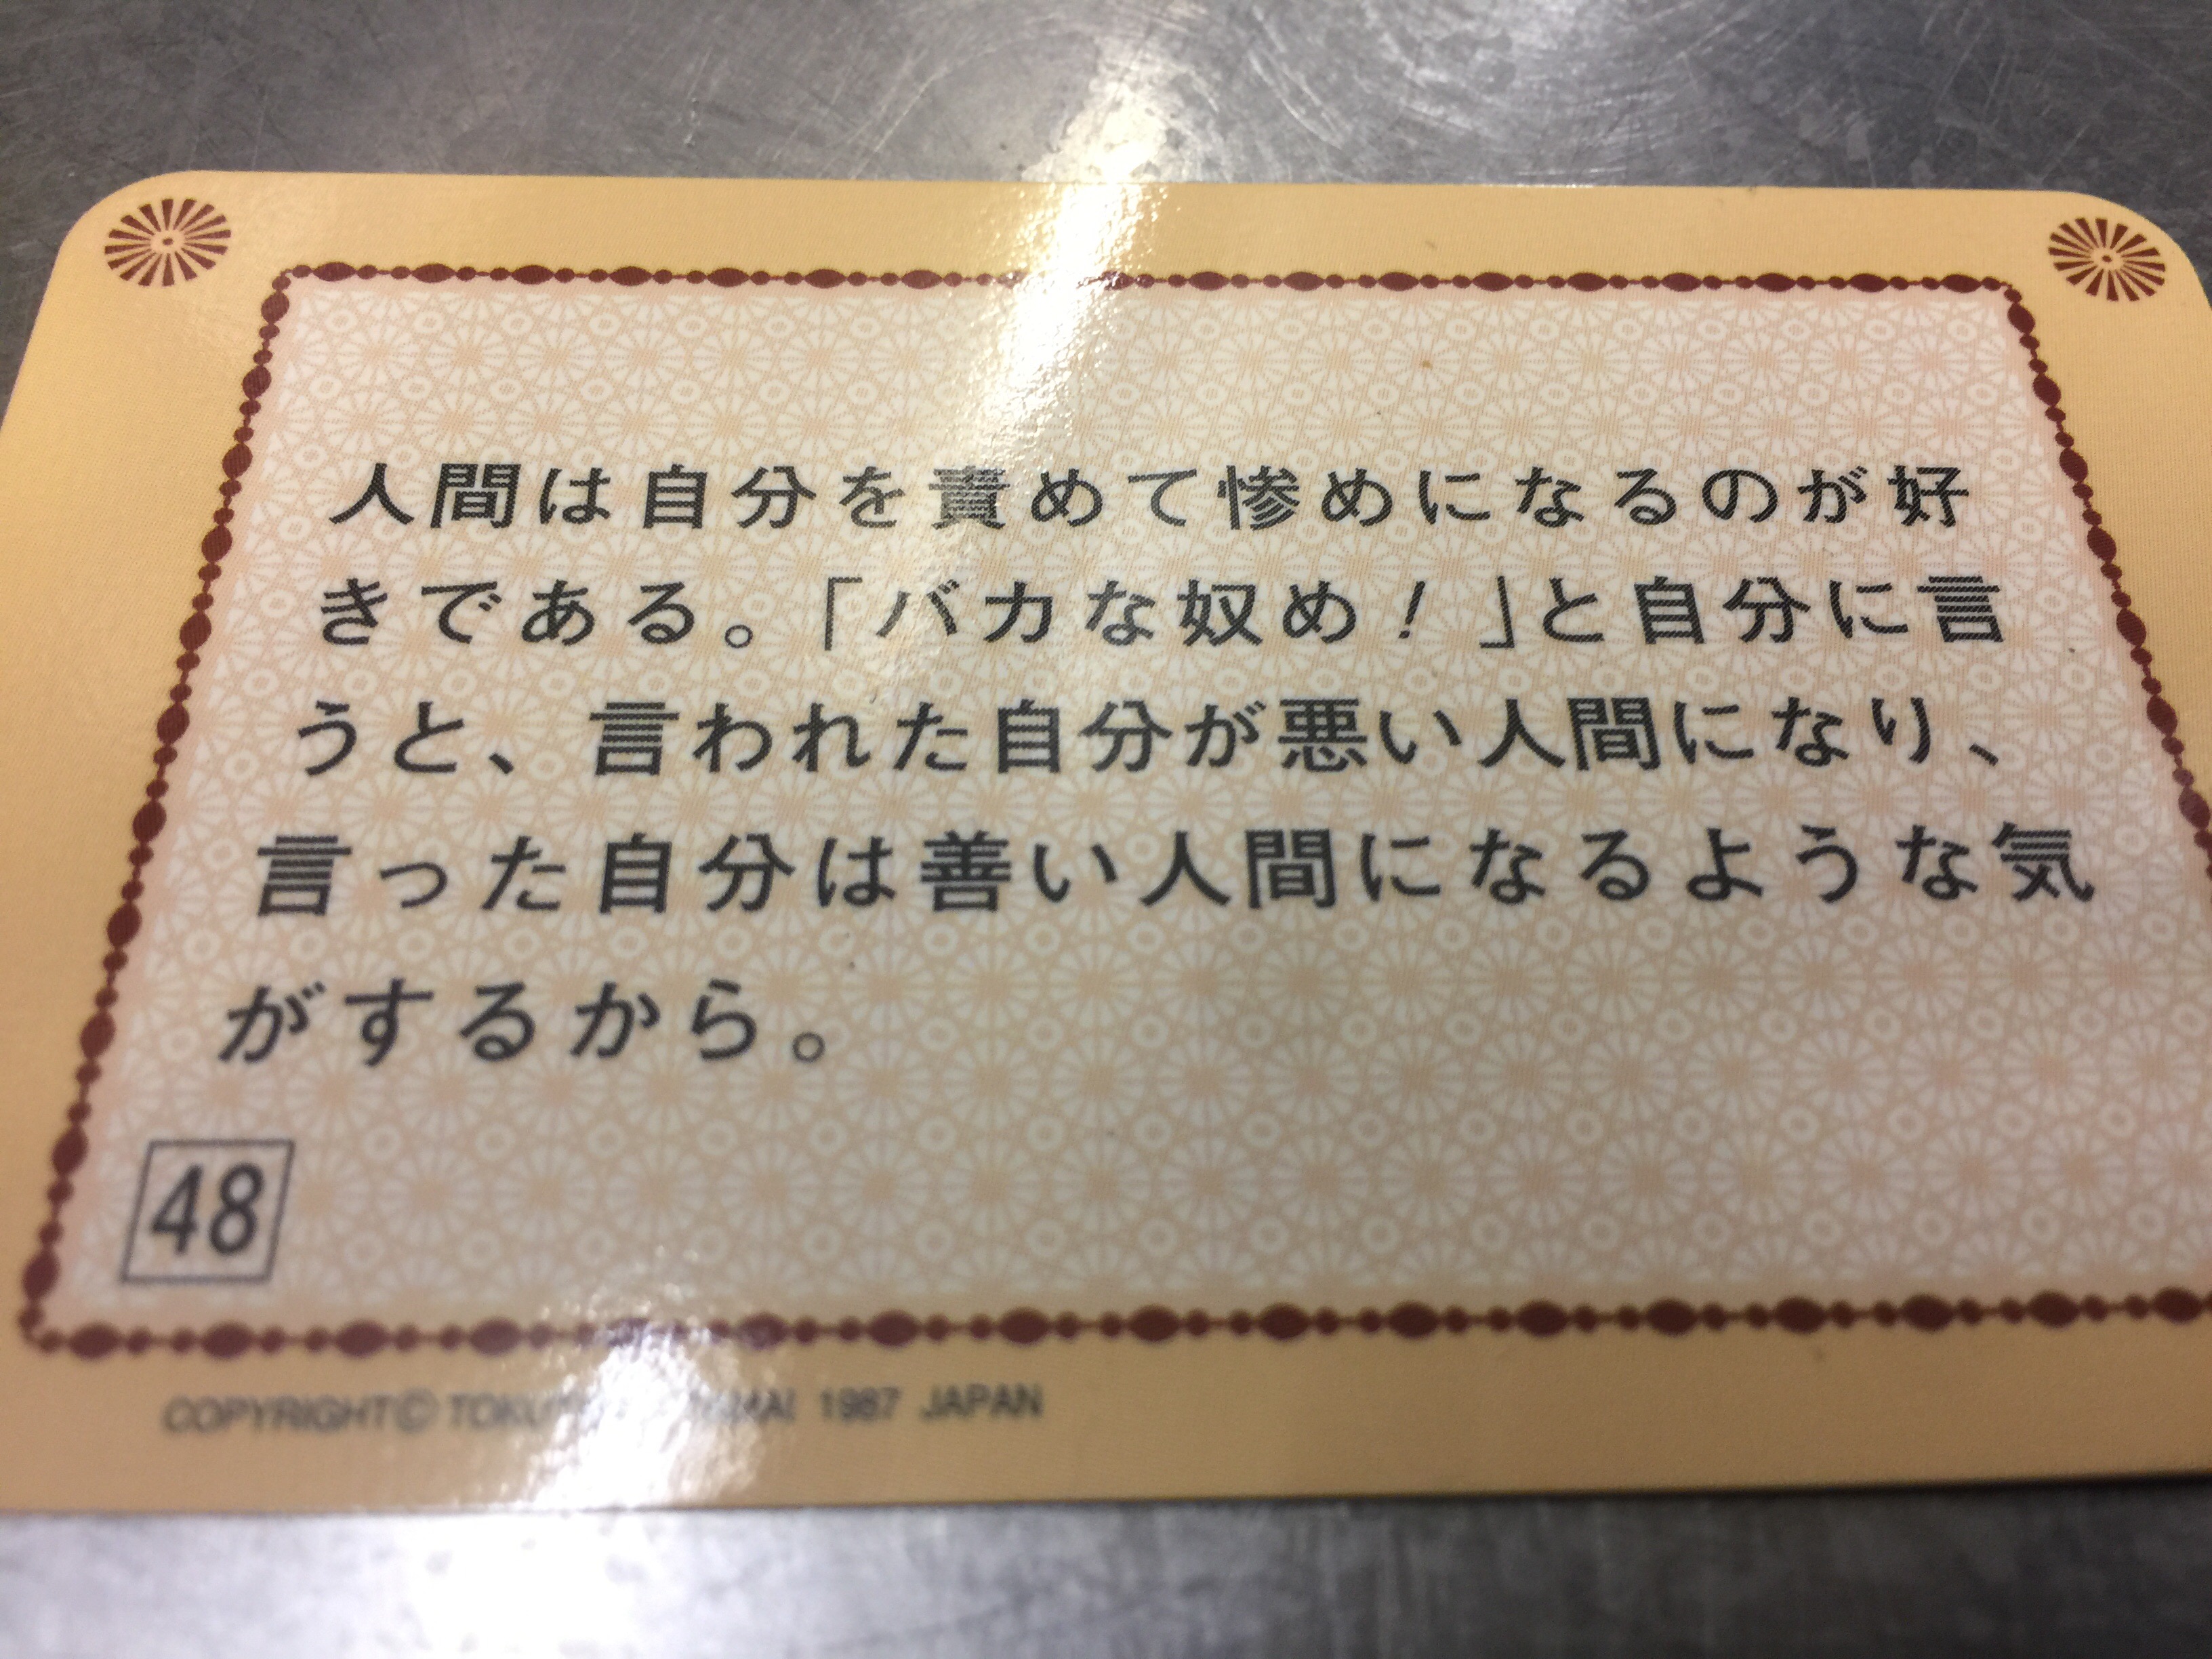 人間は自分を責めて惨めになるのが好
きである。「バカな奴め！」と自分に言
うと、言われた自分が悪い人間になり、
言った自分は善い人間になるような気
がするから。
48
COPYRIGHT© 1987 JAPAN